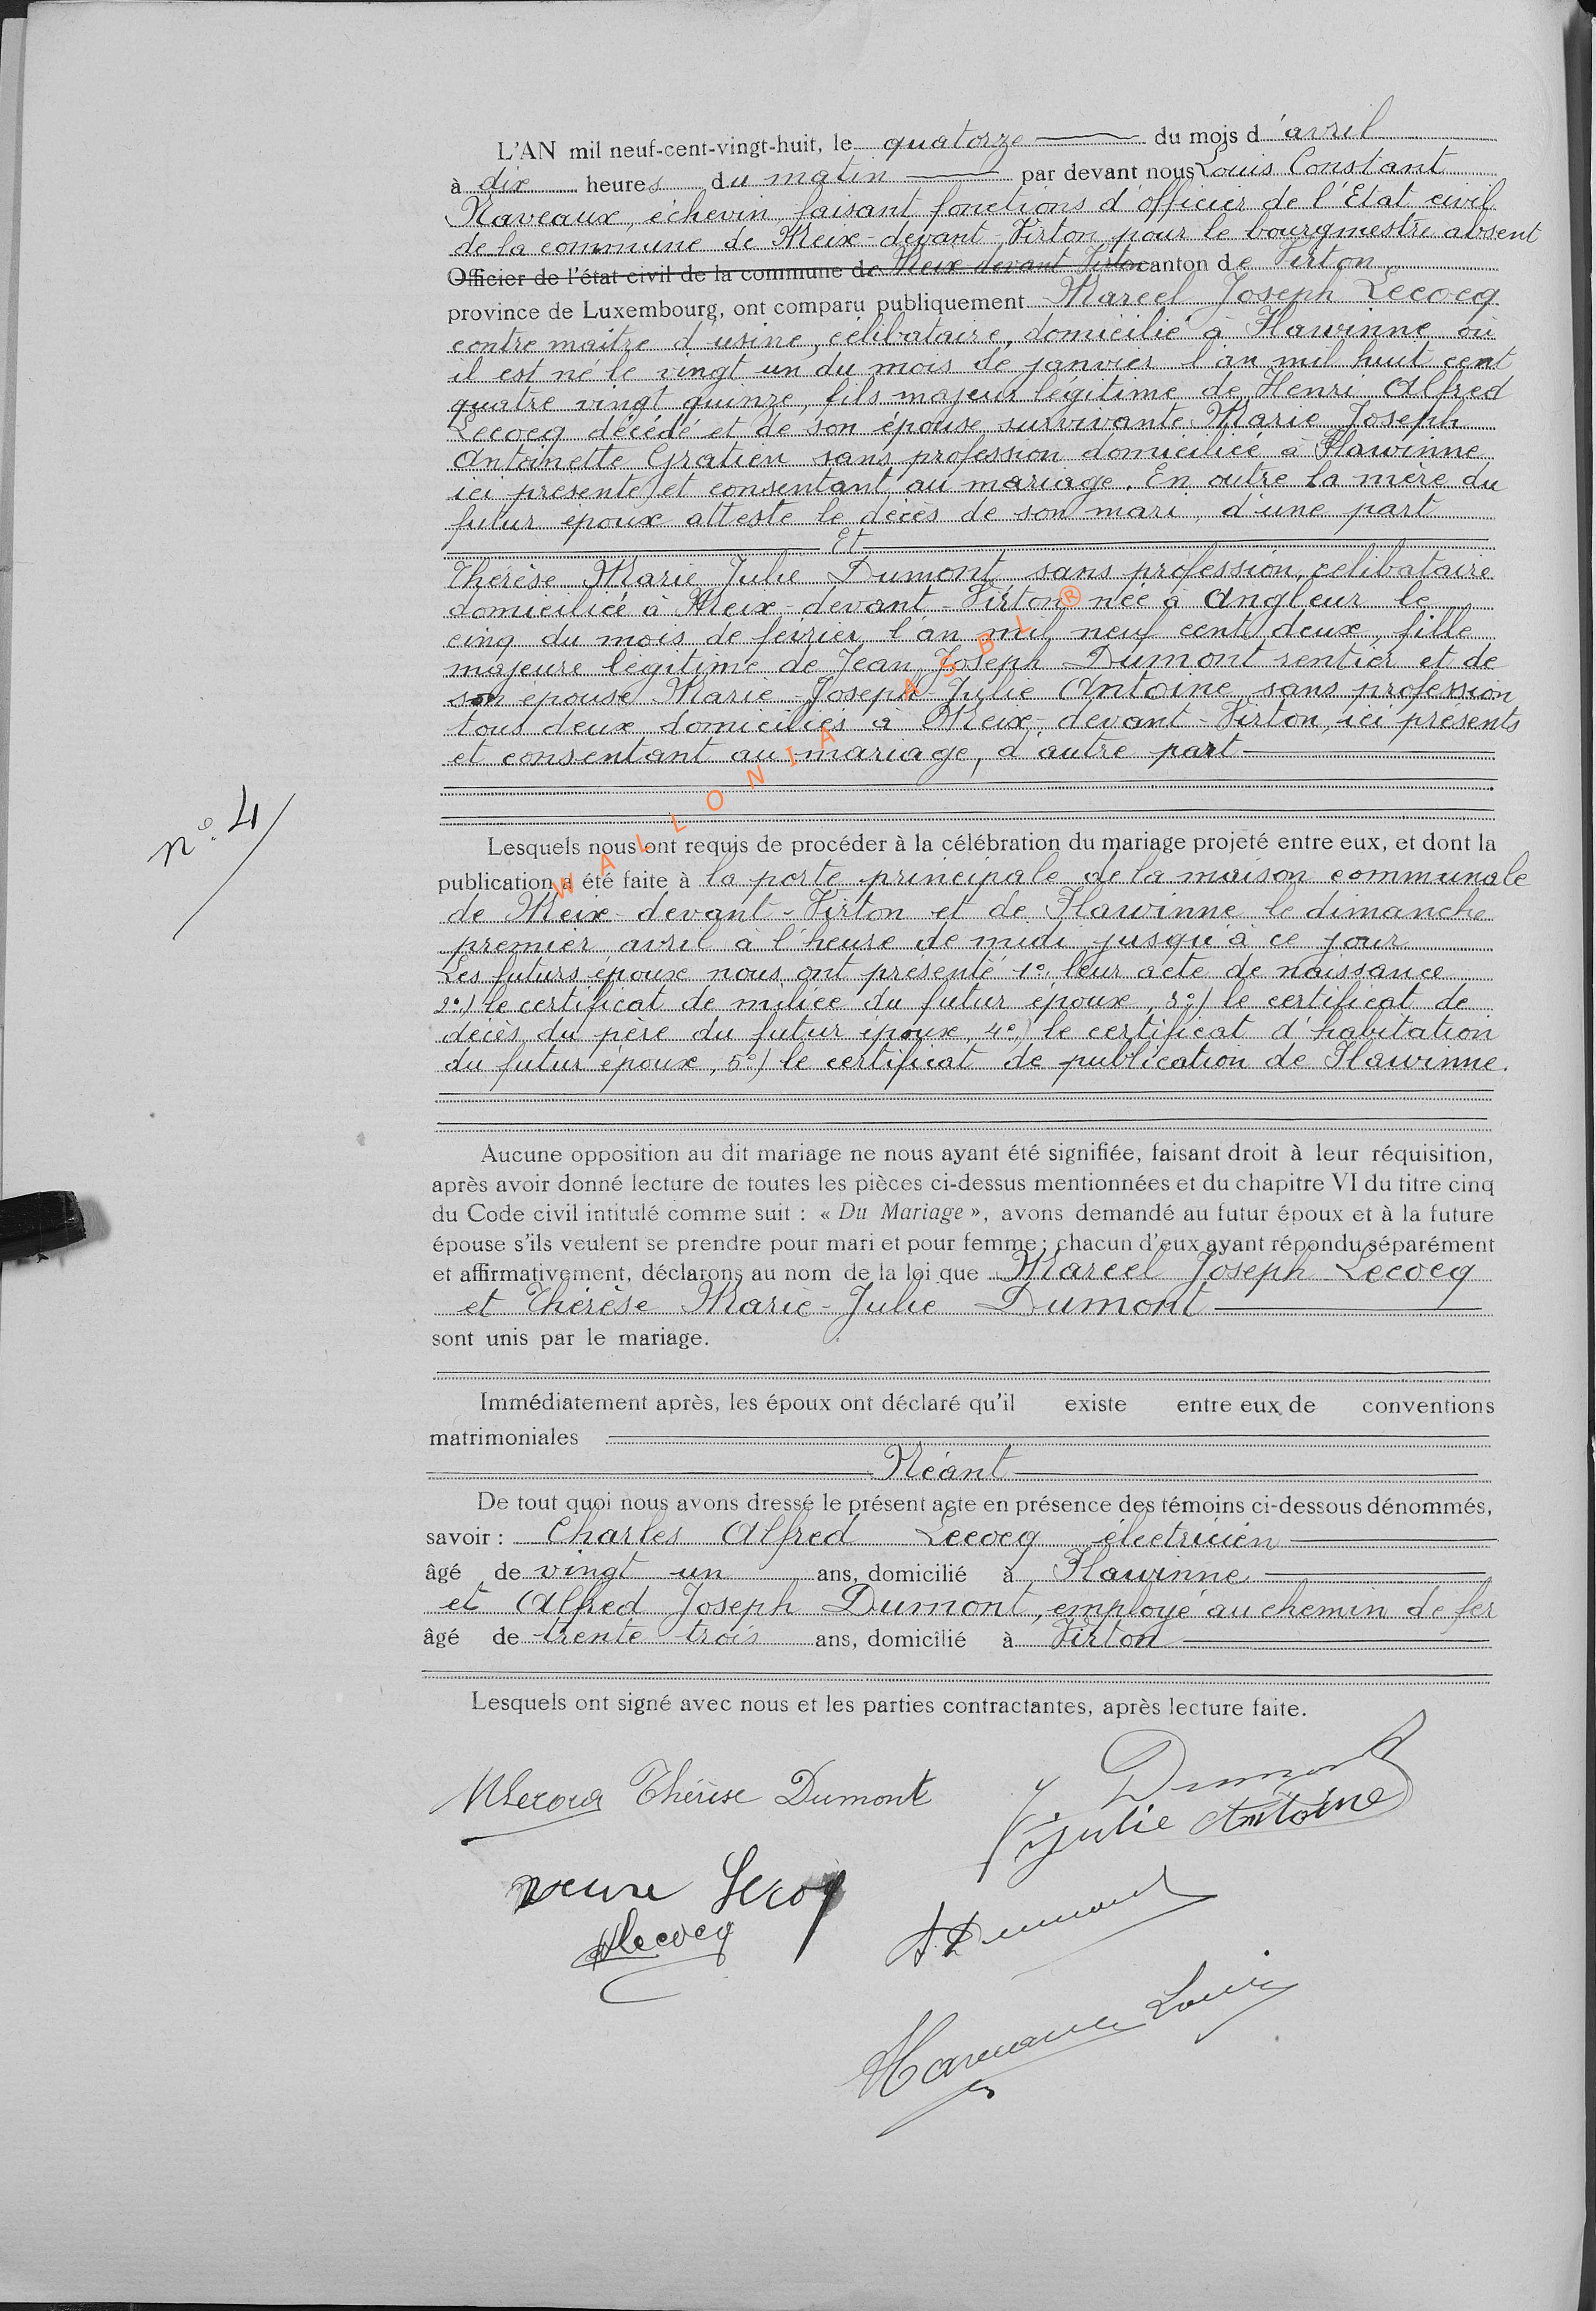 L'AN mil neuf-cent-vingt-huit, le quatorze du mois d'avril
à dix heures du matin par devant nous Louis Constant
Naveaux, échevin faisant fonctions d'officier de l'Etat civil
de la commune de Meix-devant-Virton pour le bourgmestre absent
Officier de l'état civil de la commune de Meix devant Virton canton de Virton
province de Luxembourg, ont comparu publiquement Marcel Joseph Lecocq
contre maître d'usine, célibataire, domicilié à Flawinne où
il est né le vingt un du mois de janvier l'an mil huit cent
quatre vingt quinze, fils majeur légitime de Henri Alfred
Lecocq décédé et de son épouse survivante Marie Joseph
Antoinette Gratien sans profession domiciliée à Flawinne
ici présente et consentant au mariage. En outre la mère du
futur époux atteste le décès de son mari, d'une part
Et
Thérèse Marie Julie Dumont sans profession, célibataire
domiciliée à Meix-devant-Virton née à Angleur le
cinq du mois de février l'an mil neuf cent deux, fille
majeure légitime de Jean Joseph Dumont rentier et de
son épouse Marie-Joseph-Julie Antoine sans profession
tous deux domiciliés à Meix-devant-Virton, ici présents
et consentant au mariage, d'autre part
n° 4
Lesquels nous ont requis de procéder à la célébration du mariage projeté entre eux, et dont la
publication a été faite à la porte principale de la maison communale
de Meix-devant-Virton et de Flawinne le dimanche
premier avril à l'heure de midi jusqu'à ce jour
Les futurs époux nous ont présenté 1° leur acte de naissance
2°) le certificat de milice du futur époux, 3°) le certificat de
décès du père du futur époux, 4°) le certificat d'habitation
du futur époux, 5°) le certificat de publication de Flawinne.
Aucune opposition au dit mariage ne nous ayant été signifiée, faisant droit à leur réquisition,
après avoir donné lecture de toutes les pièces ci-dessus mentionnées et du chapitre VI du titre cinq
du Code civil intitulé comme suit : « Du Mariage », avons demandé au futur époux et à la future
épouse s'ils veulent se prendre pour mari et pour femme; chacun d'eux ayant répondu séparément
et affirmativement, déclarons au nom de la loi que Marcel Joseph Lecocq
et Thérèse Marie-Julie Dumont
sont unis par le mariage.
Immédiatement après, les époux ont déclaré qu'il existe entre eux de conventions
matrimoniales
Néant
De tout quoi nous avons dressé le présent acte en présence des témoins ci-dessous dénommés,
savoir : Charles Alfred Lecocq électricien
âgé de vingt un ans, domicilié à Flawinne
et Alfred Joseph Dumont, employé au chemin de fer
âgé de trente trois ans, domicilié à Virton
Lesquels ont signé avec nous et les parties contractantes, après lecture faite.
MLecocq Thérèse Dumont J. Dumont
Julie Antoine
veuve Lecoq
Lecocq A. Dumont
Louis
WALLONIA ASBL ®